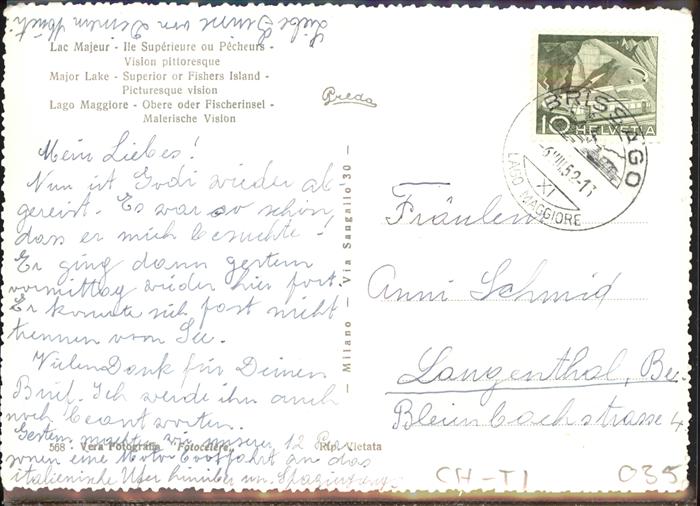 Liebe Grüsse von Deinem
Lac Majeur - Ile Supérieure ou Pécheurs -
Vision pittoresque
Major Lake - Superior or Fishers Island -
Picturesque vision
Lago Maggiore - Obere oder Fischerinsel -
Malerische Vision
Preda
Mein Liebes!
Nun ist Godi wieder ab
gereist. Es war so schön,
dass er mich besuchte!
Er ging dann gestern
vormittag wieder hier fort.
Er konnte sich fast nicht
trennen vom See.
Vielen Dank für Deinen
Brief. Ich werde ihn auch
noch beantworten.
Gestern machten wir unserer 12 Per
sonen eine Motorbootfahrt an das
italienische Ufer hinüber
568 - Vera Fotografia "Fotocelere" Rip. Vietata
— Milano - Via Sangallo 30 —
10 HELVETIA
BRISSAGO
LAGO MAGGIORE
XI
Fräulein
Anni Schmid
Langenthal, Be.
Bleienbachstrasse 4
CH-TI 035